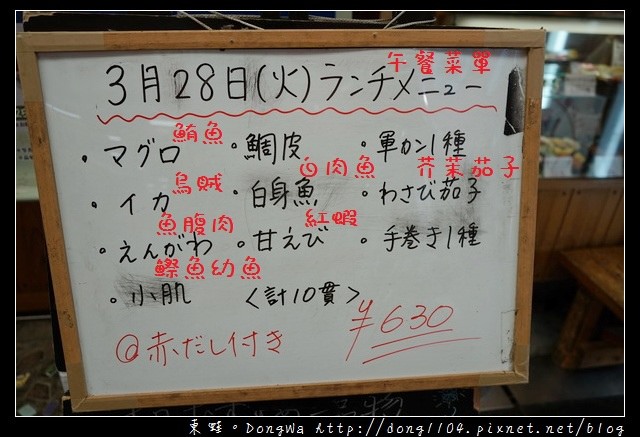 午餐菜單
3月28日(火)ランチメニュー
鮪魚
・マグロ ・鯛皮 ・軍カン1種
烏賊 白肉魚 芥茉茄子
・イカ ・白身魚 ・わさび茄子
魚腹肉 紅蝦
・えんがわ ・甘えび ・手巻き1種
鰶魚幼魚
・小肌 <計10貫>
@赤だし付き ¥630
東蛙。DongWa http://dong1104.pixnet.net/blog